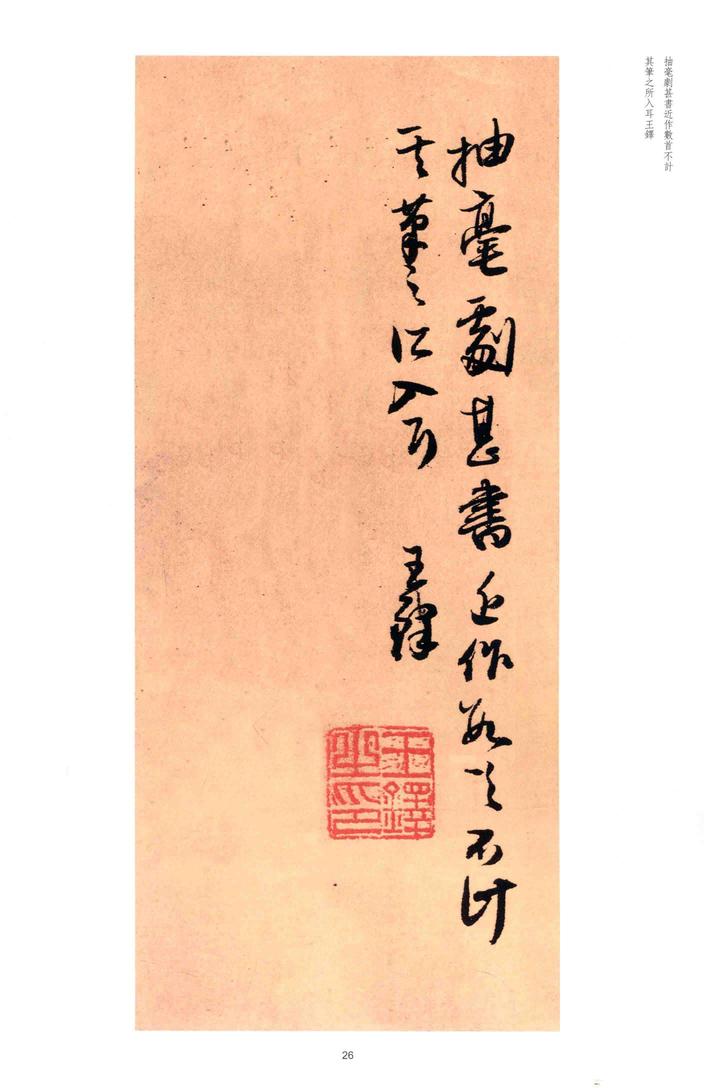 抽毫劇甚書近作數首不計
其筆之所入耳王鐸
抽毫劇甚書近作數首不計
其筆之所入耳 王鐸
王鐸
之印
26